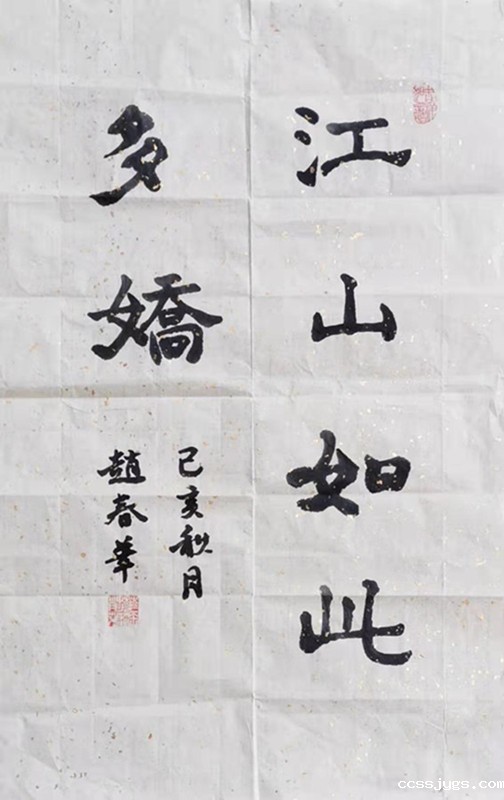 江山如此
多嬌
己亥秋月
趙春華
ccssjygs.com